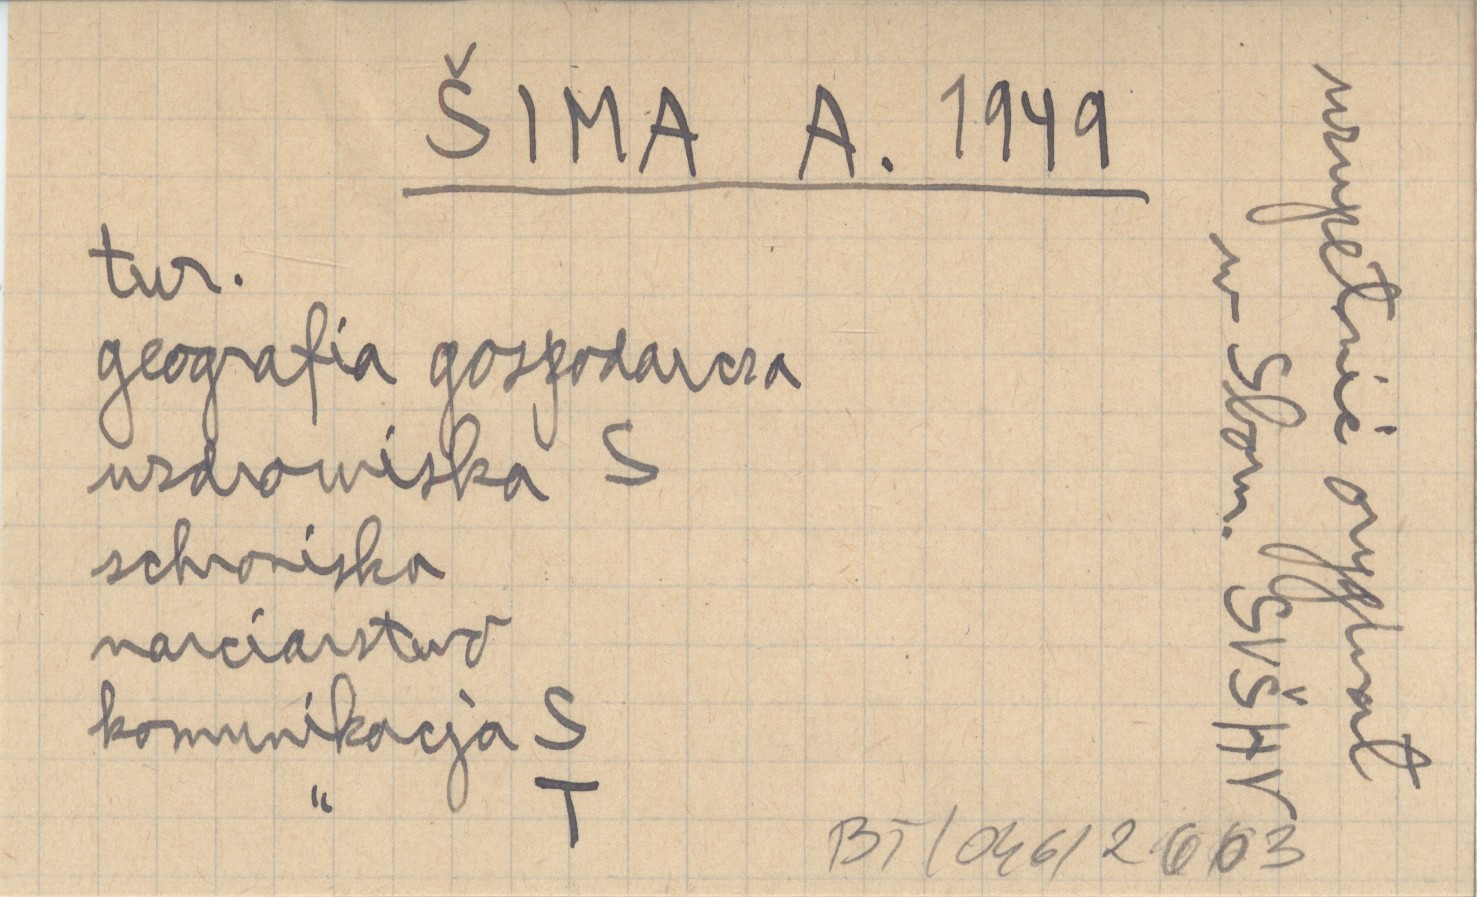 ŠIMA A. 1949
tur.
geografia gospodarcza
uzdrowiska S
schroniska
narciarstwo
komunikacja S
" T
uzupełnić oryginał
w Sborn. SVŠHV
BT/046/2003